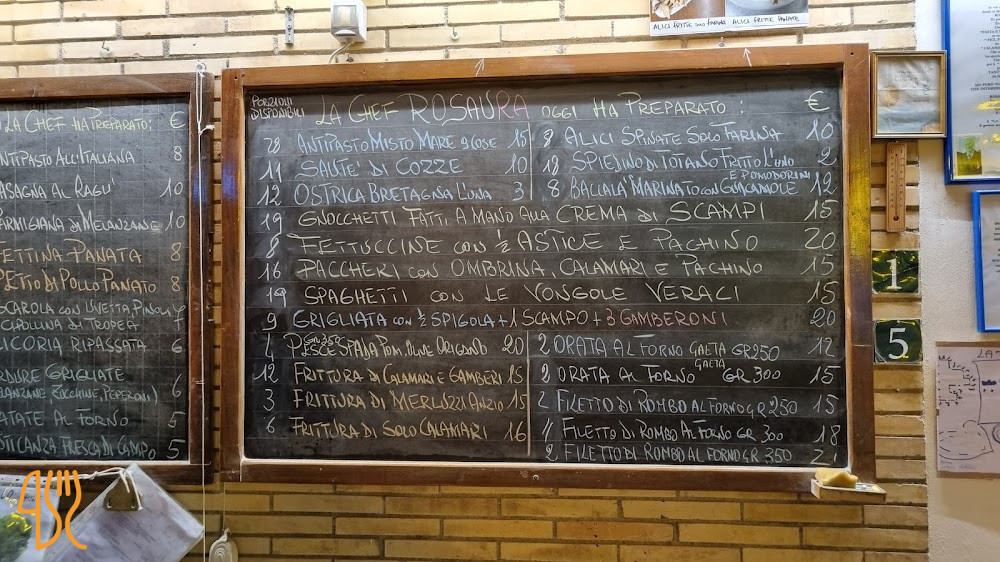 ALICI FRITTE SOLO FARINA
ALICI FRITTE PANATE
LA CHEF HA PREPARATO: €
ANTIPASTO ALL'ITALIANA 8
LASAGNA AL RAGU' 10
PARMIGIANA DI MELANZANE 10
FETTINA PANATA 8
PETTO DI POLLO PANATO 8
SCAROLA CON UVETTA PINOLI
CIPOLLINA DI TROPEA 7
CICORIA RIPASSATA 6
VERDURE GRIGLIATE
MELANZANE ZUCCHINE, PEPERONI) 6
PATATE AL FORNO 5
FRESCA DI CAMPO 5
PORZIONI
DISPONIBILI
LA CHEF ROSAURA OGGI HA PREPARATO: €
28 ANTIPASTO MISTO MARE 9 COSE 15
11 SAUTE' DI COZZE 10
12 OSTRICA BRETAGNA L'UNA 3
8 ALICI SPINATE SOLO FARINA 10
18 SPIEDINO DI TOTANO FRITTO L'UNO 2
E POMODORINI
8 BACCALA' MARINATO CON GUACAMOLE 12
19 GNOCCHETTI FATTI A MANO ALLA CREMA DI SCAMPI 15
8 FETTUCCINE CON ½ ASTICE E PACHINO 20
16 PACCHERI CON OMBRINA, CALAMARI E PACHINO 15
19 SPAGHETTI CON LE VONGOLE VERACI 15
9 GRIGLIATA CON ½ SPIGOLA + 1 SCAMPO + 3 GAMBERONI 20
4 PESCE SPADA POM. OLIVE ORIGANO 20
12 FRITTURA DI CALAMARI E GAMBERI 15
3 FRITTURA DI MERLUZZI ANZIO 15
6 FRITTURA DI SOLO CALAMARI 16
2 ORATA AL FORNO GAETA GR 250 12
2 ORATA AL FORNO GAETA GR 300 15
2 FILETTO DI ROMBO AL FORNO GR 250 15
4 FILETTO DI ROMBO AL FORNO GR 300 18
2 FILETTO DI ROMBO AL FORNO GR 350 21
1
5